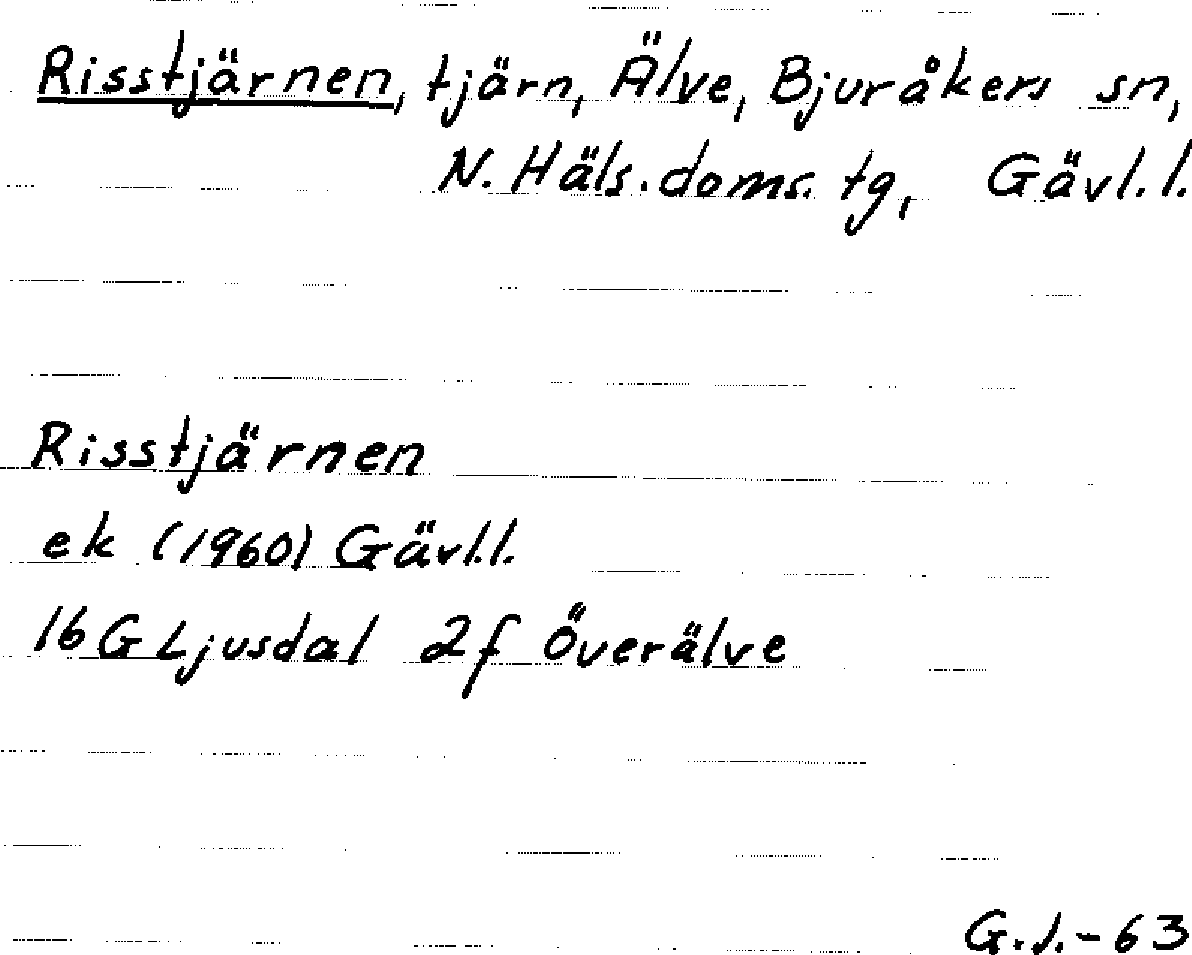 Risstjärnen, tjärn, Älve, Bjuråkers sn,
N. Häls. doms. tg, Gävl. l.
Risstjärnen
ek (1960) Gävl.l.
16G Ljusdal 2f Överälve
G.J.-63